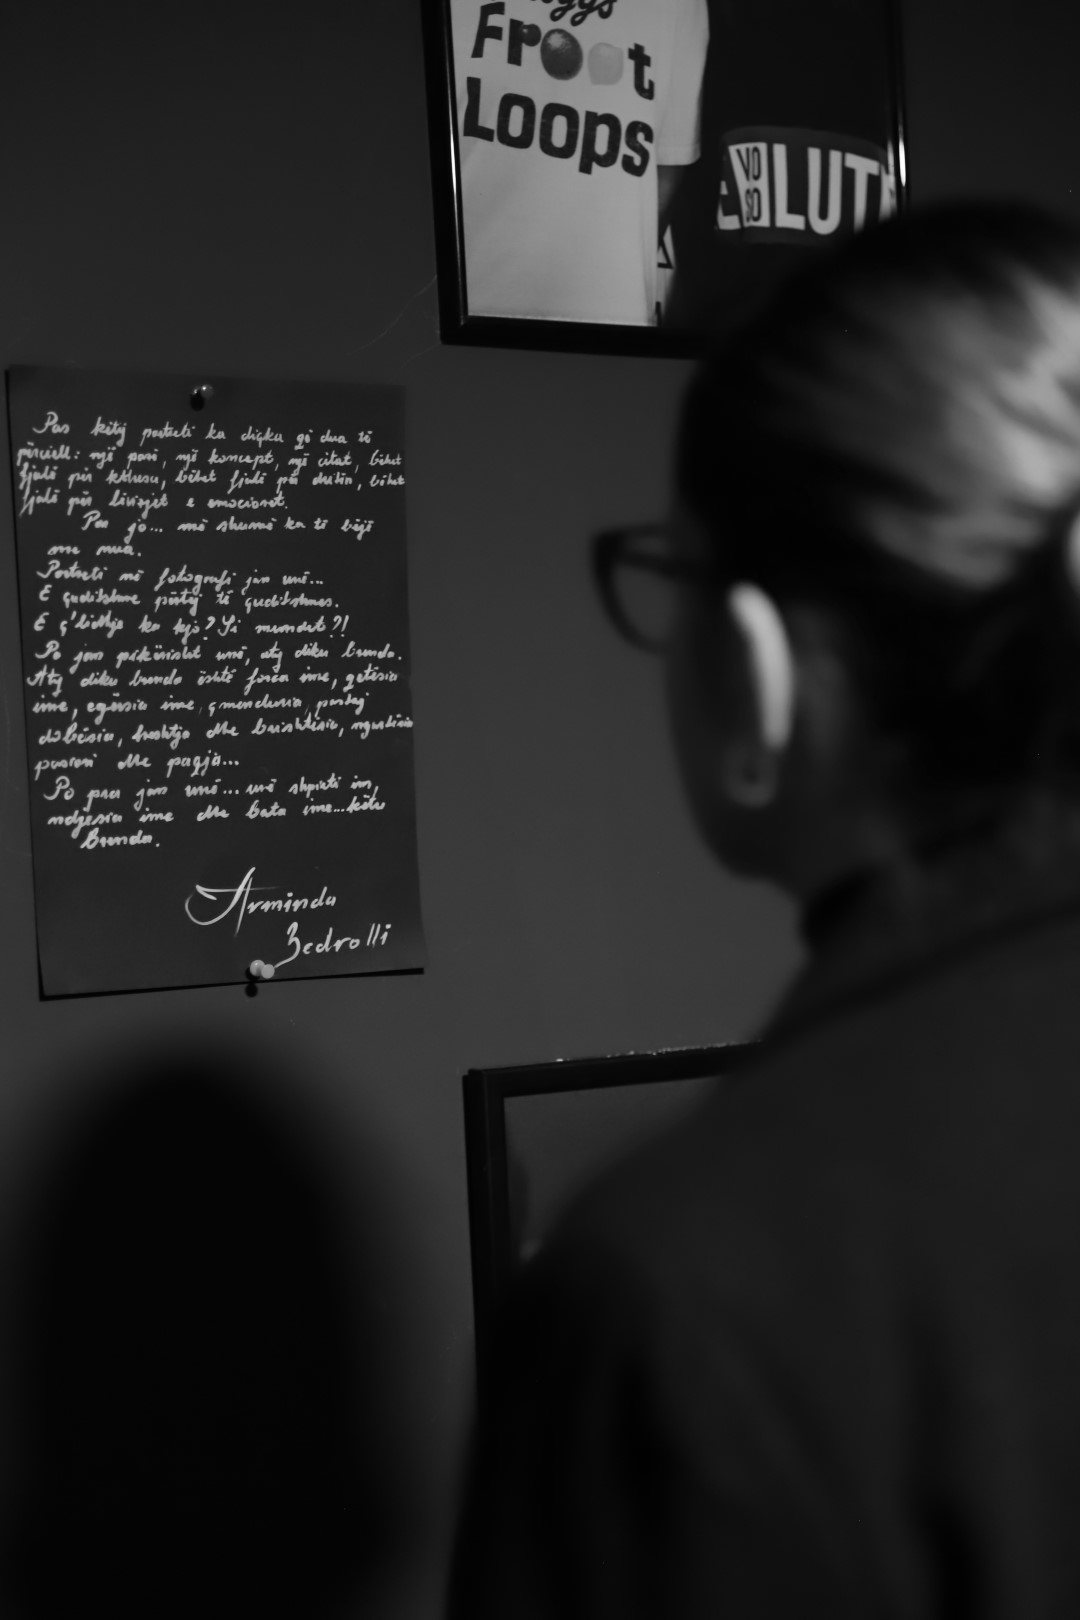 Froot
Loops
VO
SO
LUT
Pas këtij portreti ka diçka që dua të
përcjell: një pasi, një koncept, një citat, bëhet
fjalë për kthesa, bëhet fjalë për dritën, bëhet
fjalë për lëvizjet e emocionet.
Por jo... më shumë ka të bëjë
me mua.
Portreti në fotografi jam unë...
E çuditshme përtej të çuditshmes.
E ç'lidhje ka kjo? Si mundet?!
Po jam pikërisht unë, aty diku brenda.
Aty diku brenda është forca ime, qetësia
ime, egërsia ime, çmenduria, pastaj
dobësia, heshtja dhe brishtësia, ngurtësia
pasioni dhe paqja...
Po pra jam unë... unë shpirti im,
ndjesia ime dhe bota ime... këtu
Brenda.
Arminda
Bedrolli